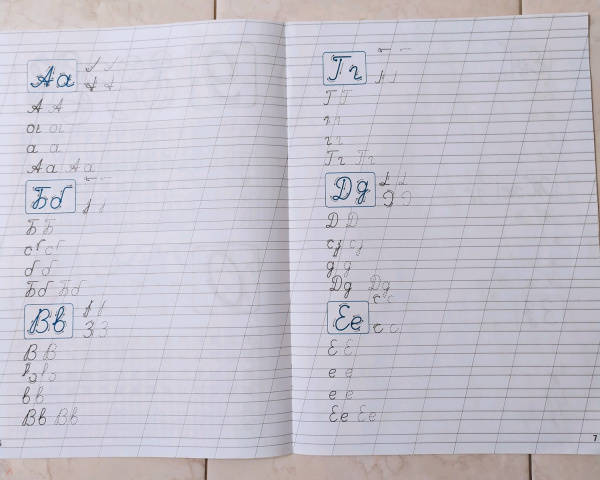 Аа
А А
а а
Аа Аа
Бб
Б Б
б б
Бб Бб
Вв
З З
В В
в в
Вв Вв
Гг
Г Г
г г
г г
Гг Гг
Дд
Д Д
д д
Дд Дд
Ее
с с
Е Е
е е
е е
Ее Ее
7